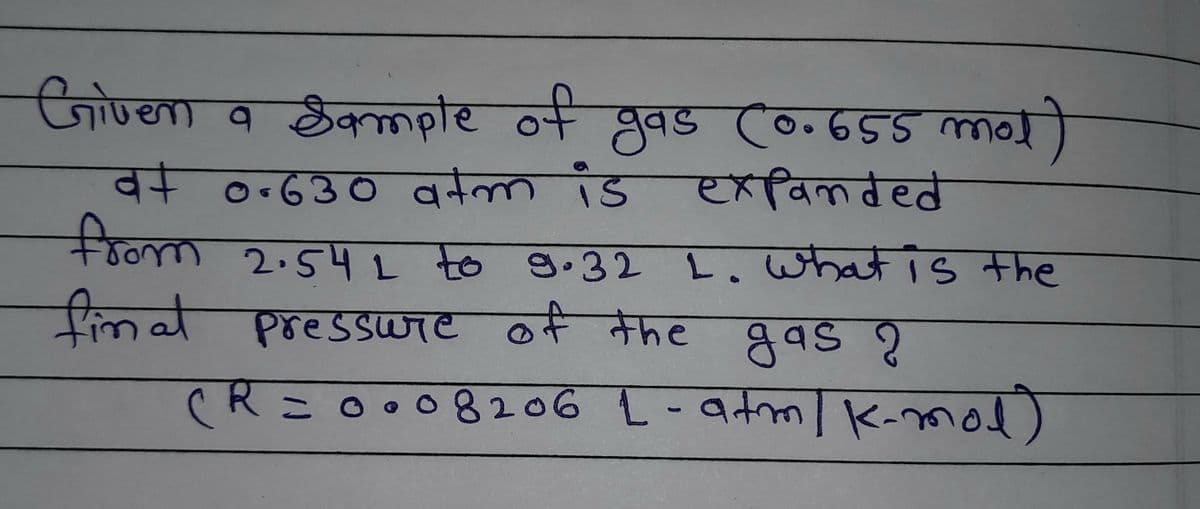 Given a sample of gas (0.655 mol)
at 0.630 atm is expanded
from 2.54 L to 9.32 L. What is the
final pressure of the gas ?
(R = 0.08206 L-atm/K-mol)